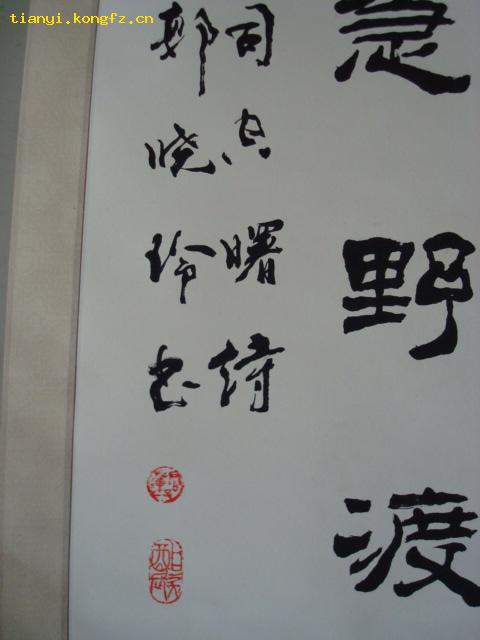 tianyi.kongfz.cn
急野渡
司空曙诗
郭晓玲书